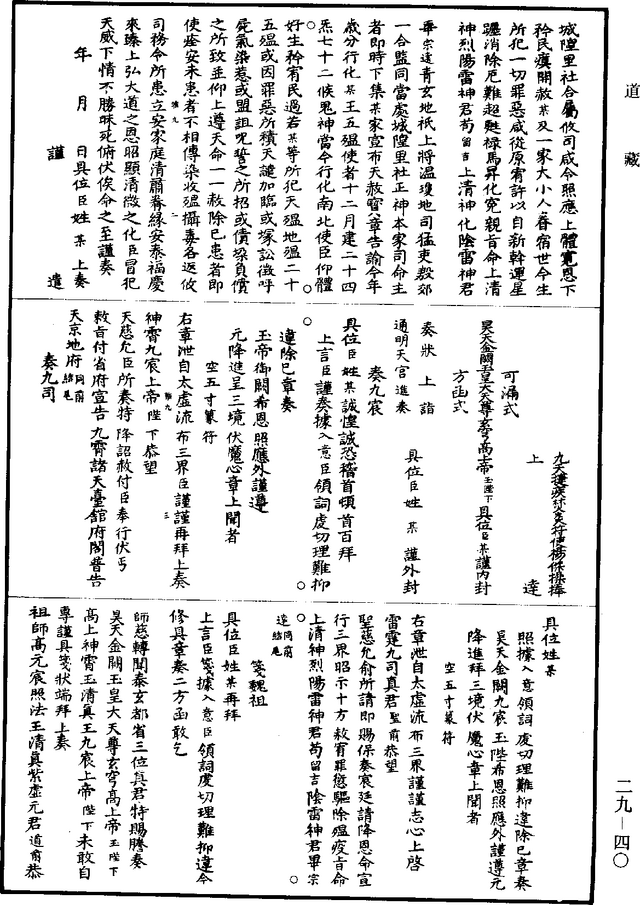 道藏
城隍里社合屬攸司咸令照應上體寬恩下
矜民瘼開赦某及一家大小人眷宿世今生
所犯一切罪惡咸從原宥許以自新斡運星
躔消除厄難超甦祿馬昇化冤親旨命上清
神烈陽雷神君苟留吉上清神化陰雷神君
畢宗遠青玄地祇上將溫瓊地司猛吏殷郊
一合監同當處城隍里社正神本家司命主
者即時下集某家宣布天赦寶章告諭今年
歲分行化某王五瘟使者十二月建二十四
炁七十二候鬼神當令行化南北使臣仰體
好生矜宥民過若某等所犯天瘟地瘟二十
五瘟或因罪惡所積天譴加臨或塚訟徵呼
屍氣染惹或盟詛呪誓之所招或債垛負償
之所致並仰上遵天命一一赦除已患者即
使痊安未患者不相傳染收瘟攝毒各返攸
司務令所患立安家庭清肅眷緣安泰福慶
來臻上弘大道之恩昭顯清微之化臣冒犯
天威下情不勝昧死俯伏俟命之至謹奏
年 月 日具位臣姓 某 上奏
謹 遣
九天捷疾炎火符使楊傑操捧
上 達
可漏式
昊天金闕玉皇大天尊玄穹高上帝玉陛下具位臣某謹內封
方函式
奏狀 上 詣
通明天宮進奏 具位臣姓 某 謹外封
奏九宸
具位臣姓某誠惶誠恐稽首頓首百拜
上言臣謹奏據入意臣領詞虔切理難抑
違除已章奏
玉帝御闕希恩照應外謹遵
元降進呈三境伏魔心章上聞者
空五寸篆符
右章泄自太虛流布三界臣謹謹再拜上奏
神霄九宸上帝陛下恭望
天慈允臣所奏特降詔赦付臣奉行伏丐
敕旨付省府宣告九霄諸天臺館府閣普告
天京地府同前結尾
奏九司
具位姓某
照據入意領詞虔切理難抑違除已章奏
昊天金闕九宸玉陛希恩照應外謹遵元
降進拜三境伏魔心章上聞者
空五寸篆符
右章泄自太虛流布三界謹謹志心上啓
雷霆九司真君聖前恭望
聖慈允俞所請即賜保奏宸廷請降恩命宣
行三界昭示十方赦宥罪愆驅除瘟疫旨命
上清神烈陽雷神君苟留吉陰雷神君畢宗
遠同前結尾
箋魏祖
具位臣姓某再拜
上言臣箋據入意臣領詞虔切理難抑違今
修具章奏二方函敢乞
師慈轉聞泰玄都省三位真君特賜謄奏
昊天金闕玉皇大天尊玄穹高上帝玉陛下
高上神霄玉清真王九宸上帝陛下未敢自
專謹具箋狀端拜上奏
祖師高元宸照法王清真紫虛元君道前恭
二九－四〇